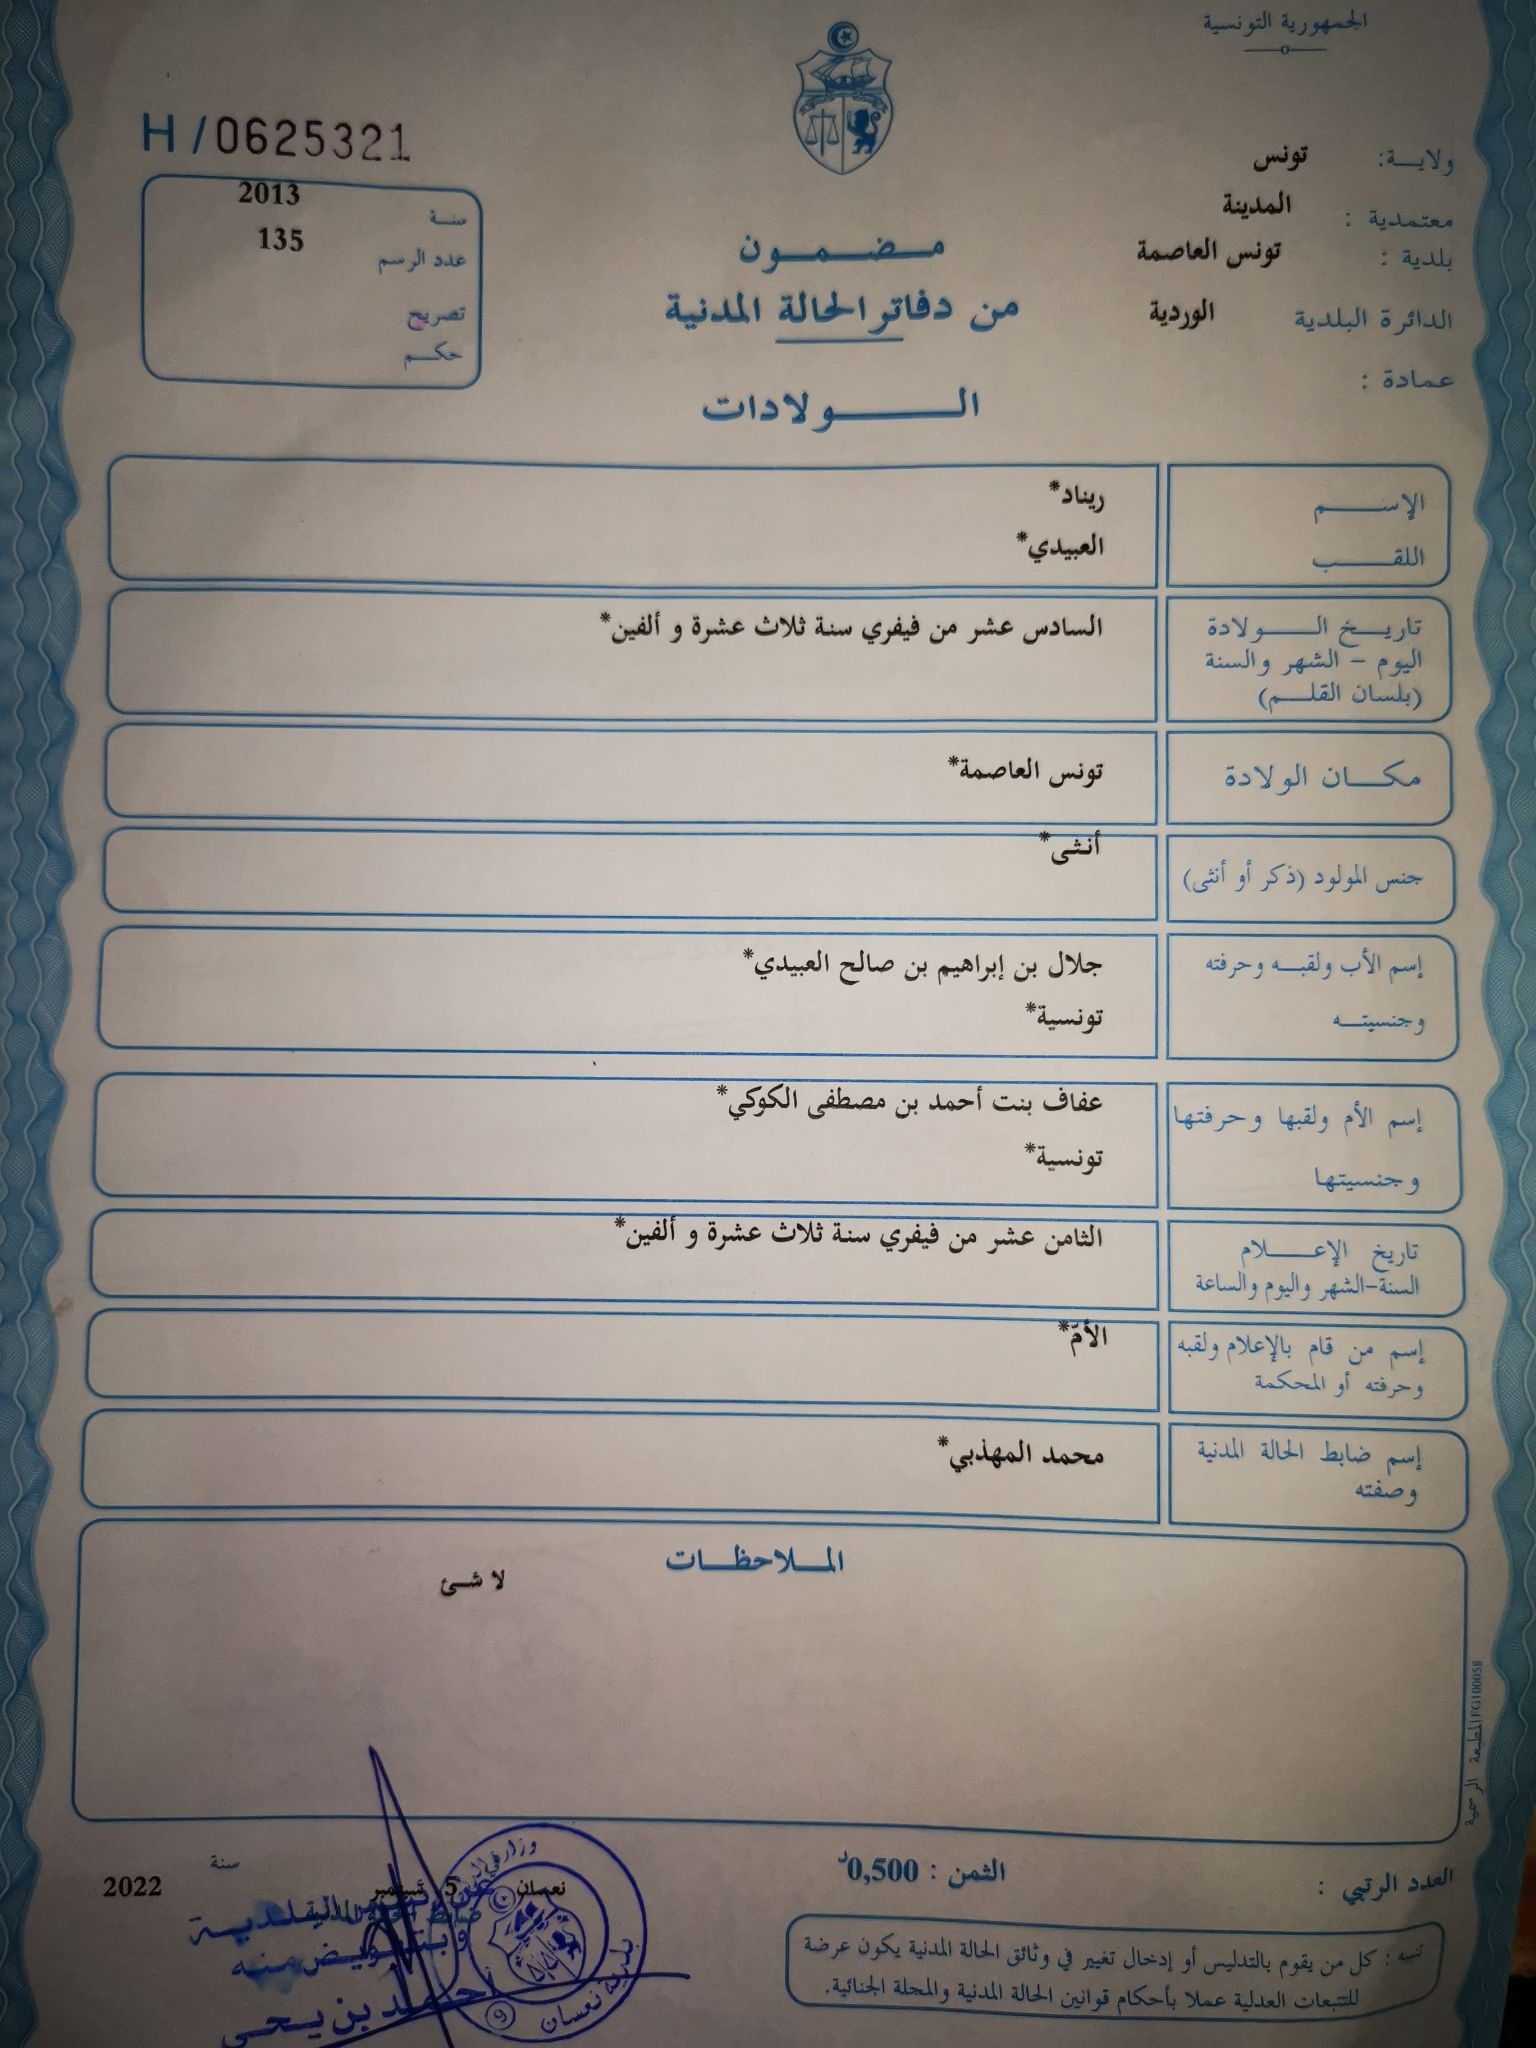 الجمهورية التونسية
ولاية: تونس
معتمدية : المدينة
بلدية : تونس العاصمة
الدائرة البلدية الوردية
عمادة :
H/0625321
سنة 2013
عدد الرسم 135
تصريح
حكم
مضمون
من دفاتر الحالة المدنية
الولادات
الإسم ريناد*
اللقب العبيدي*
تاريخ الولادة السادس عشر من فيفري سنة ثلاث عشرة و ألفين*
اليوم - الشهر والسنة
(بلسان القلم)
مكان الولادة تونس العاصمة*
جنس المولود (ذكر أو أنثى) أنثى*
إسم الأب ولقبه وحرفته جلال بن إبراهيم بن صالح العبيدي*
وجنسيته تونسية*
إسم الأم ولقبها وحرفتها عفاف بنت أحمد بن مصطفى الكوكي*
وجنسيتها تونسية*
تاريخ الإعلام الثامن عشر من فيفري سنة ثلاث عشرة و ألفين*
السنة-الشهر واليوم والساعة
إسم من قام بالإعلام ولقبه الأمّ*
وحرفته أو المحكمة
إسم ضابط الحالة المدنية محمد المهذبي*
وصفته
الملاحظات
لا شئ
المطبعة الرسمية FG110005B
العدد الرتبي :
الثمن : 0,500د
نعسان 5 سبتمبر سنة 2022
تنبيه : كل من يقوم بالتدليس أو إدخال تغيير في وثائق الحالة المدنية يكون عرضة
للتتبعات العدلية عملا بأحكام قوانين الحالة المدنية والمجلة الجنائية.
ضابط الحالة المدنية
عن رئيس البلدية
و بتفويض منه
أحمد بن يحي
بلدية نعسان
9